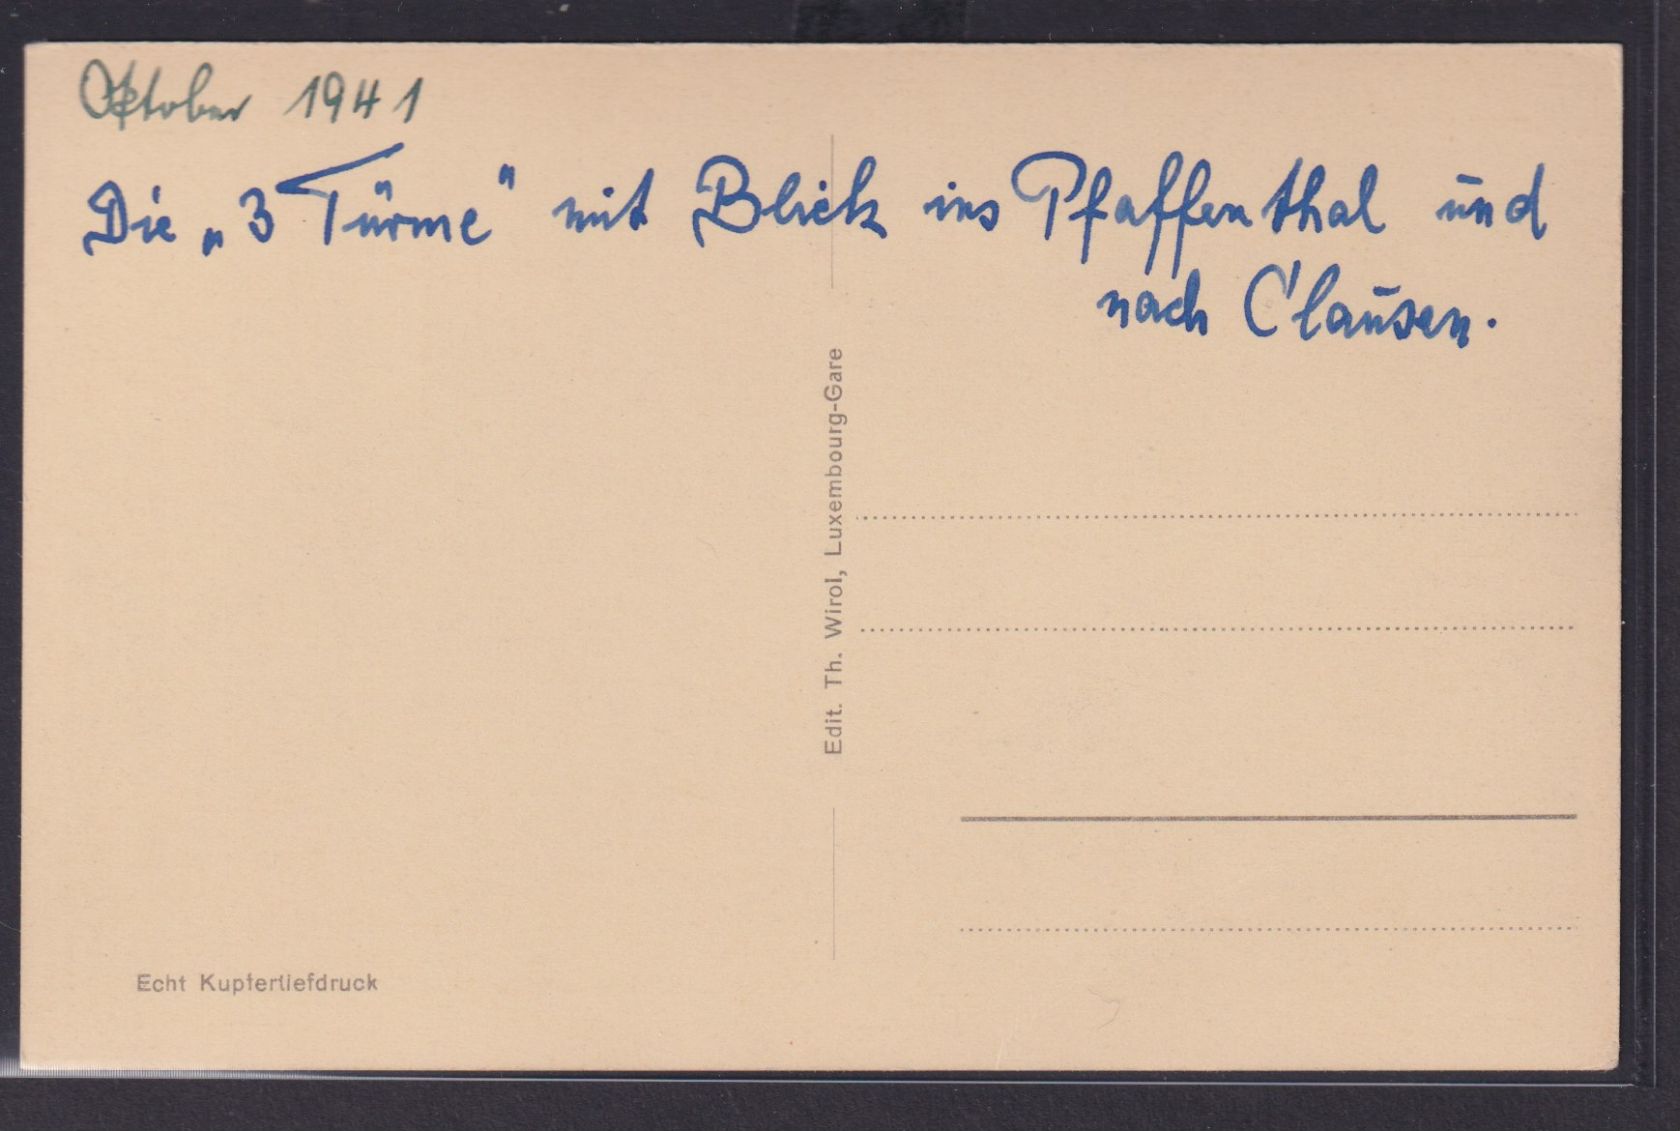 Oktober 1941
Die „3 Türme" mit Blick ins Pfaffenthal und
nach Clausen.
Edit. Th. Wirol, Luxembourg-Gare
Echt Kupfertiefdruck